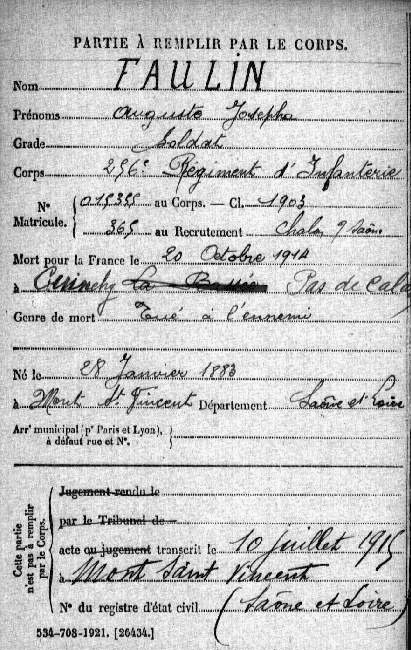 PARTIE À REMPLIR PAR LE CORPS.
Nom TAULIN
Prénoms Auguste Joseph
Grade Soldat
Corps 256e Régiment d'Infanterie
N° Matricule. { 015355 au Corps. — Cl. 1903
365 au Recrutement Chalon s/ Saône
Mort pour la France le 20 Octobre 1914
à Cuinchy La Bassée Pas de Cala
Genre de mort Tué à l'ennemi
Né le 28 Janvier 1883
à Mont St Vincent Département Saône et Loire
Arrt municipal (pr Paris et Lyon),
à défaut rue et N°.
Cette partie n'est pas à remplir par le Corps.
Jugement rendu le
par le Tribunal de
acte ou jugement transcrit le 10 juillet 1915
à Mont Saint Vincent
N° du registre d'état civil (Saône et Loire)
534-708-1921. [26434.]